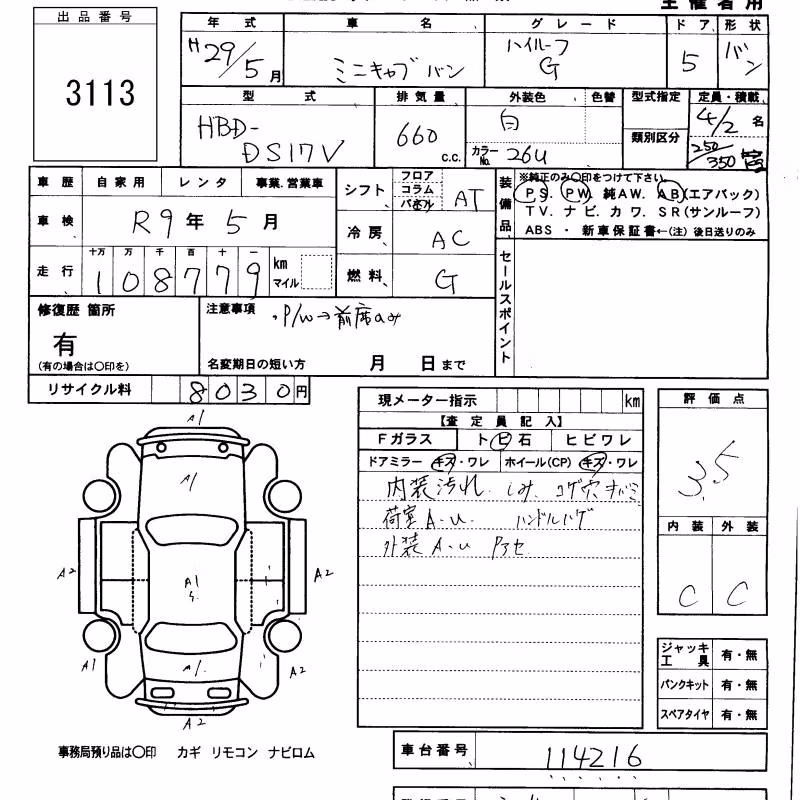 主催者用
出品番号
3113
年式 車名 グレード ドア 形状
H29/5月 ミニキャブバン ハイルーフ G 5 バン
型式 排気量 外装色 色替 型式指定 定員・積載
HBD-DS17V 660 c.c. 白 カラーNo. 26U 類別区分 4/2名 250/350
車歴 自家用 レンタ 事業.営業車
車検 R9年5月
十万 万 千 百 十 一
走行 108779 km マイル
シフト フロア コラム パネル AT
冷房 AC
燃料 G
装備品
※純正のみ○印をつけて下さい。
PS. PW. 純AW. AB(エアバック)
TV. ナビ. カワ. SR(サンルーフ)
ABS・新車保証書←(注)後日送りのみ
セールスポイント
修復歴 箇所
有
(有の場合は○印を)
注意事項
P/W→前席のみ
名変期日の短い方 月 日まで
リサイクル料 8030円
現メーター指示 km
【査定員記入】
Fガラス トビ石 ヒビワレ
ドアミラー キズ・ワレ ホイール(CP) キズ・ワレ
内装汚れ. シミ. コゲ穴 キバミ
荷室A.U. ハンドルハゲ
外装A.U アセ
評価点
3.5
内装 外装
C C
A1
A1
A2 A1 S A2
A1 A1 A2
A2
ジャッキ工具 有・無
パンクキット 有・無
スペアタイヤ 有・無
事務局預り品は○印 カギ リモコン ナビロム
車台番号 114216